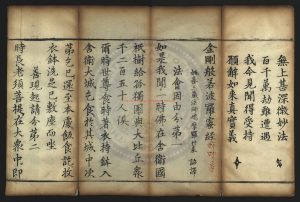 無上甚深微妙法
百千萬劫難遭遇
我今見聞得受持
願解如來真實義
金剛般若波羅蜜經
法會因由分第一
如是我聞一時佛在舍衛國
祇樹給孤獨園與大比丘眾
千二百五十人俱
爾時世尊食時著衣持鉢入
舍衛大城乞食於其城中次
第乞已還至本處飯食訖收
衣鉢洗足已敷座而坐
善現起請分第二
時長老須菩提在大眾中即